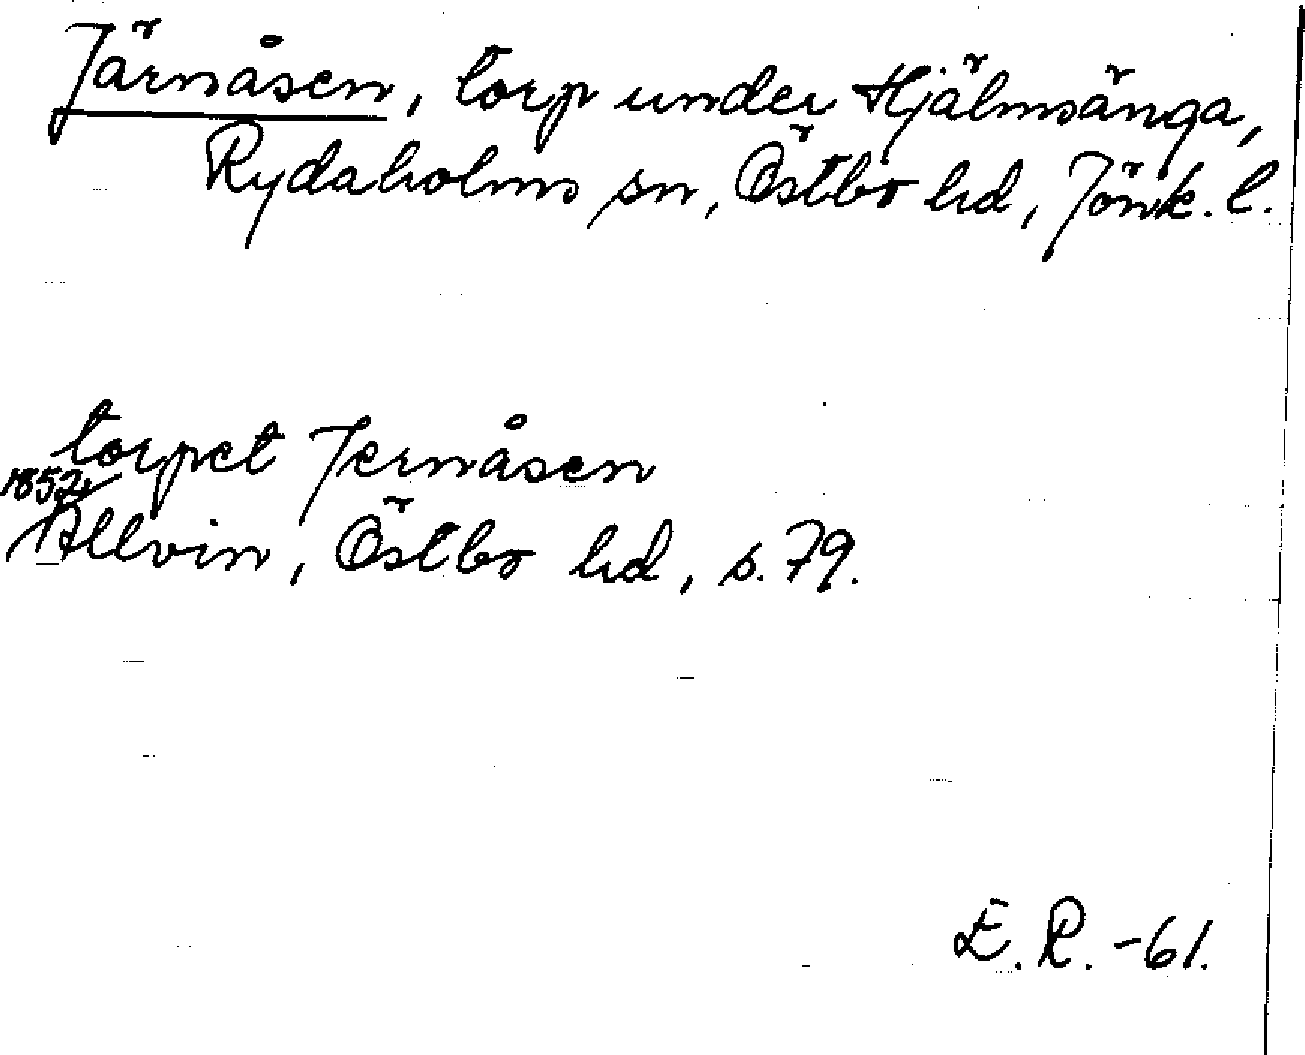 Järnåsen, torp under Hjälmsänga,
Rydaholms sn, Östbo hd, Jönk. l.
torpet Jernåsen
1852
Allvin, Östbo hd, s. 79.
E. R. -61.